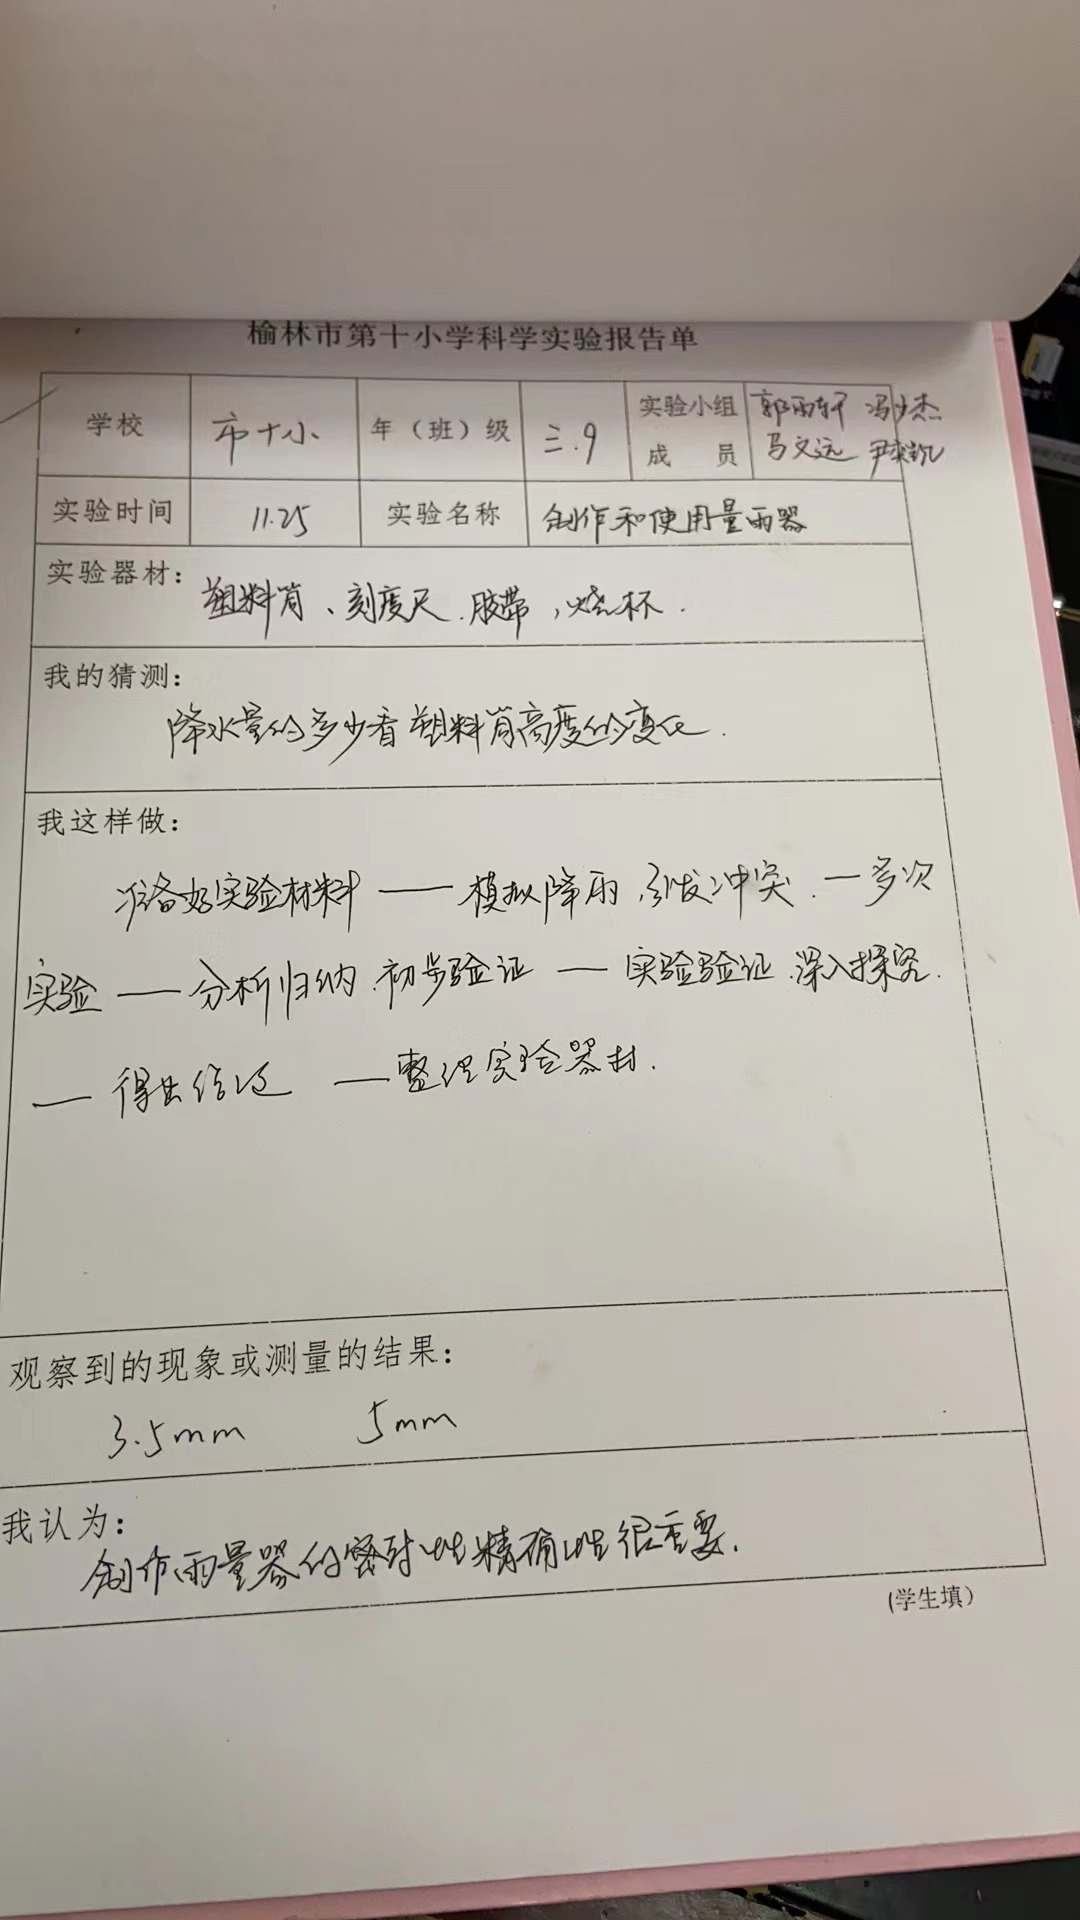 榆林市第十小学科学实验报告单
学校 市十小 年(班)级 三.9 实验小组成员 郭雨轩 冯少杰
马文远 尹奕凯
实验时间 11.25 实验名称 制作和使用量雨器
实验器材:
塑料筒、刻度尺.胶带,烧杯.
我的猜测:
降水量的多少看塑料筒高度的变化.
我这样做:
准备好实验材料——模拟降雨,引发冲突.—多次
实验——分析归纳.初步验证—实验验证.深入探究.
—得出结论—整理实验器材.
观察到的现象或测量的结果:
3.5mm 5mm
我认为:
制作雨量器的密封性精确性很重要.
(学生填)